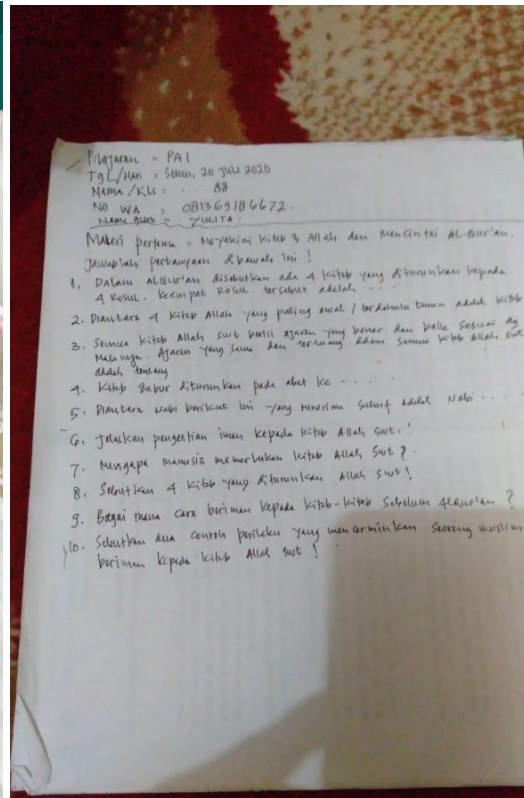 Pelajaran = PAI
Tgl/Hari = Senin, 20 Juli 2020
Nama/Kls = 88
No WA = 081369186672
Nama guru = ZULITA
Materi pertama = Meyakini kitab2 Allah dan Mencintai AL-Qur'an.
Jawablah pertanyaan dibawah ini !
1. Dalam ALQur'an disebutkan ada 4 kitab yang diturunkan kepada
4 Rosul. keempat Rosul tersebut adalah ...
2. Diantara 4 kitab Allah yang paling awal / terdahulu turun adalah kitab
3. Semua kitab Allah swt berisi ajaran yang benar dan baik sesuai dg
Masanya. Ajaran yang sama dan tertuang dalam semua kitab Allah swt
adalah tentang
4. Kitab Zabur diturunkan pada abat ke ....
5. Diantara Nabi berikut ini yang menerima suhuf adalah Nabi ....
6. Jelaskan pengertian iman kepada kitab Allah swt. !
7. Mengapa manusia memerlukan kitab Allah Swt ?
8. Sebutkan 4 kitab yang diturunkan Allah Swt !
9. Bagai mana cara beriman kepada kitab-kitab Sebelum ALQur'an ?
10. Sebutkan dua contoh perilaku yang mencerminkan seorang muslim
beriman kepada kitab Allah swt !